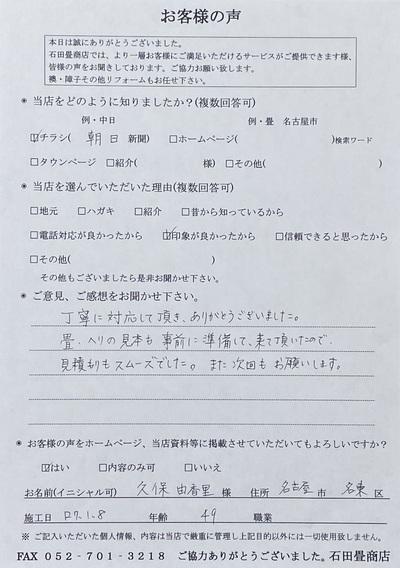 お客様の声
本日は誠にありがとうございました。
石田畳商店では、より一層お客様にご満足いただけるサービスがご提供できます様、
皆様の声をお聞きしております。ご協力お願い致します。
襖・障子その他リフォームもお任せ下さい。
＊ 当店をどのように知りましたか？(複数回答可)
例・中日 例・畳 名古屋市
☑チラシ( 朝日 新聞) □ホームページ( )検索ワード
□タウンページ □紹介( 様) □その他( )
＊ 当店を選んでいただいた理由(複数回答可)
□地元 □ハガキ □紹介 □昔から知っているから
□電話対応が良かったから ☑印象が良かったから □信頼できると思ったから
□その他( )
その他もございましたら是非お聞かせ下さい。
＊ ご意見、ご感想をお聞かせ下さい。
丁寧に対応して頂き、ありがとうございました。
畳・ヘリの見本も事前に準備して、来て頂いたので、
見積もりもスムーズでした。また次回もお願いします。
＊ お客様の声をホームページ、当店資料等に掲載させていただいてもよろしいですか？
☑はい □内容のみ可 □いいえ
お名前(イニシャル可) 久保 由香里 様 住所 名古屋 市 名東 区
施工日 R7.1.8 年齢 49 職業
※ ご記入いただいた個人情報、内容は当店で厳重に管理し上記目的以外には一切使用致しません。
FAX 052-701-3218 ご協力ありがとうございました。石田畳商店